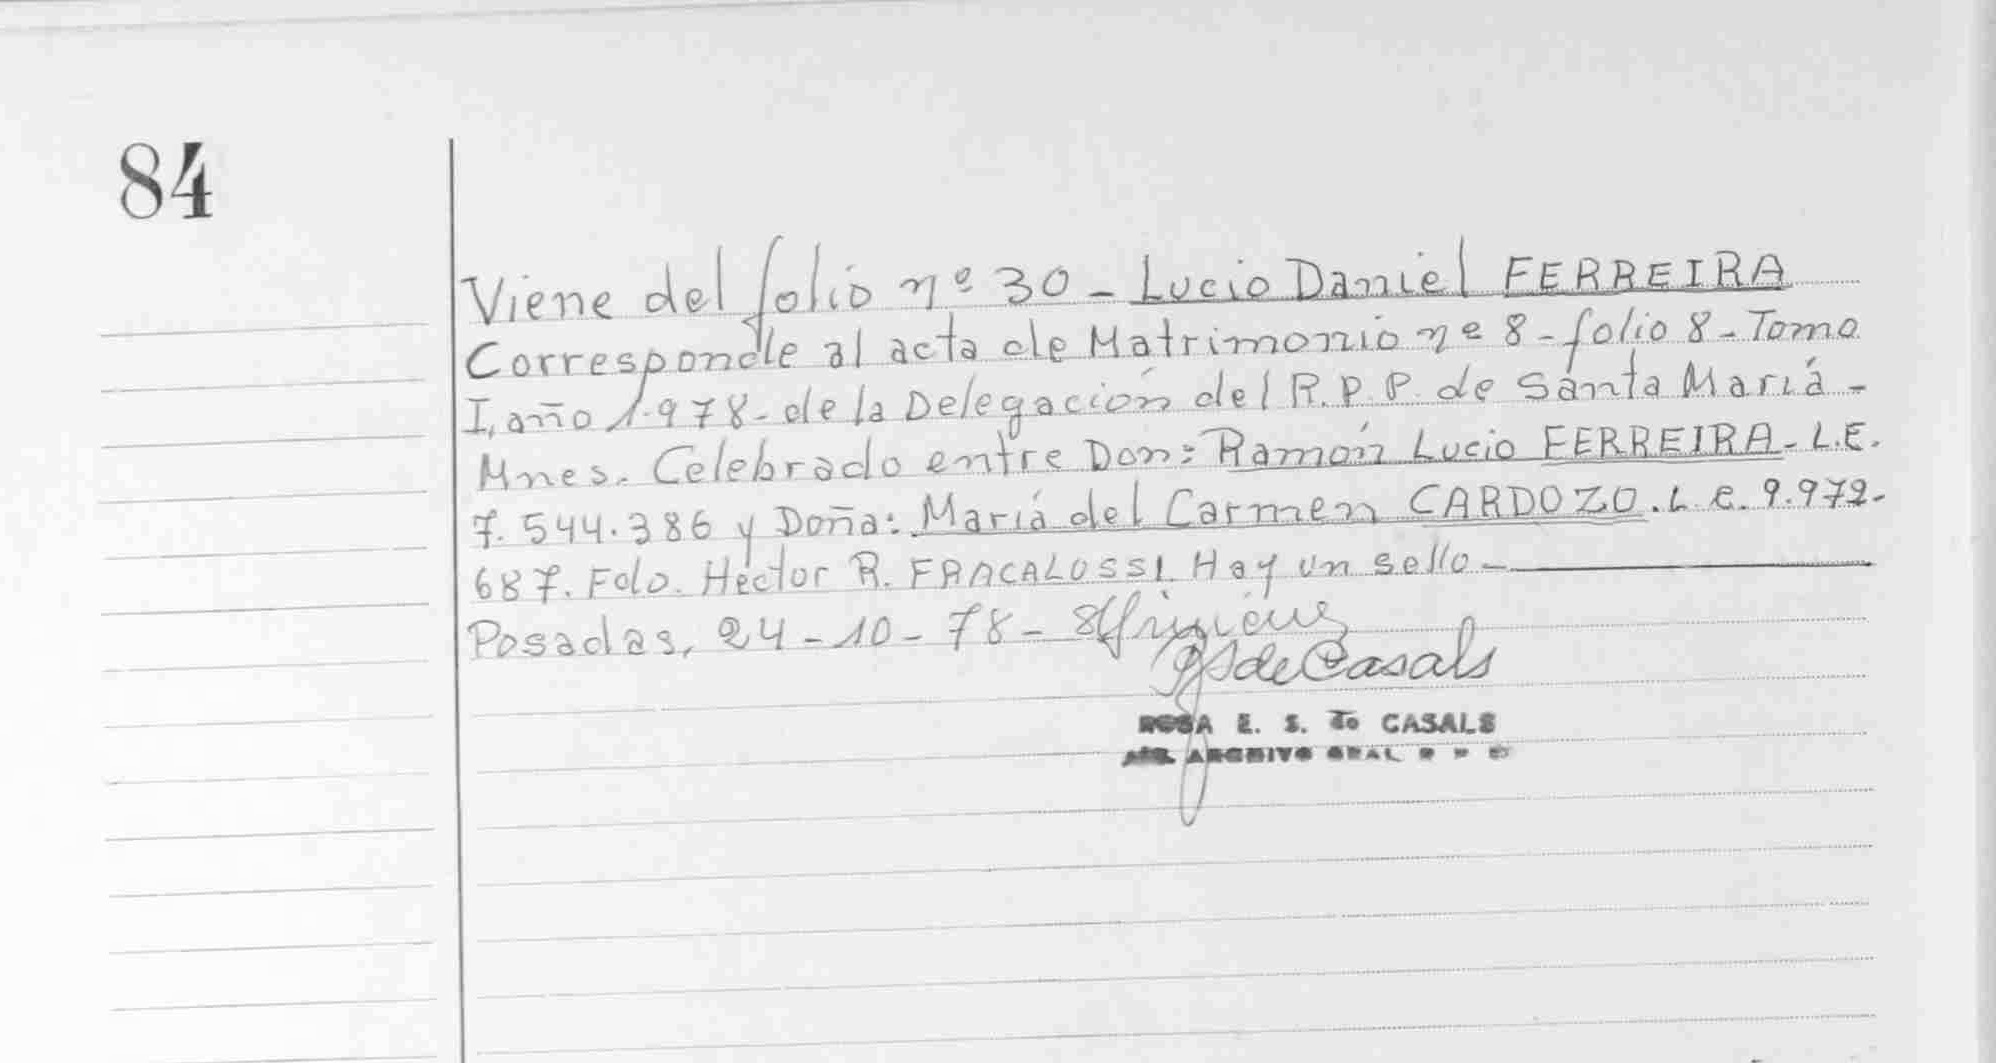 84
Viene del folio nº 30 - Lucio Daniel FERREIRA
Corresponde al acta de Matrimonio nº 8 - folio 8 - Tomo
I, año 1.978 - de la Delegación del R.P.P. de Santa María -
Mnes. Celebrado entre Don: Ramón Lucio FERREIRA - L.E.
7.544.386 y Doña: María del Carmen CARDOZO. L.C. 9.972-
687. Fdo. Héctor R. FRACALOSSI. Hay un sello -
Posadas, 24 - 10 - 78 -
de Casals
ROSA E. S. de CASALS
ARCHIVO GRAL